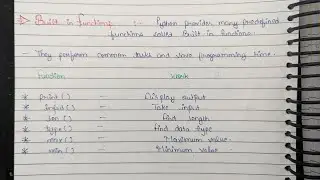 Built in functions :- Python provides many predefined
functions called Built in functions.
- They perform common tasks and save programming time.
Function Work
* print() - Display output
* input() - Take input
* len() - Find length
* type() - Find data type
* max() - Maximum value.
* min() - Minimum value.